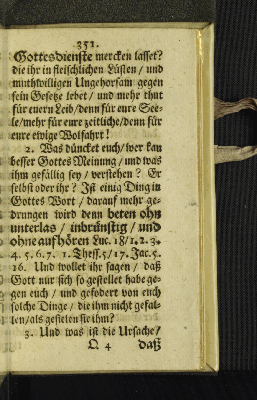 351.
Gottesdienste mercken lasset?
die ihr in fleischlichen Lüsten / und
muthwilligen Ungehorsam gegen
sein Gesetze lebet / und mehr thut
für euern Leib/denn für eure See-
le/mehr für eure zeitliche/denn für
eure ewige Wolfahrt!
2. Was düncket euch/wer kan
besser Gottes Meinung / und was
ihm gefällig sey / verstehen? Er
selbst oder ihr? Ist einig Ding in
Gottes Wort / darauf mehr ge-
drungen wird denn beten ohn
unterlas / inbrünstig / und
ohne aufhören Luc. 18/1.2.3.
4. 5. 6. 7. 1. Thess. 5/17. Jac. 5.
16. Und wollet ihr sagen / daß
Gott nur sich so gestellet habe ge-
gen euch / und gefodert von euch
solche Dinge / die ihm nicht gefal-
len/als gefielen sie ihm?
3. Und was ist die Ursache/
Q 4 daß